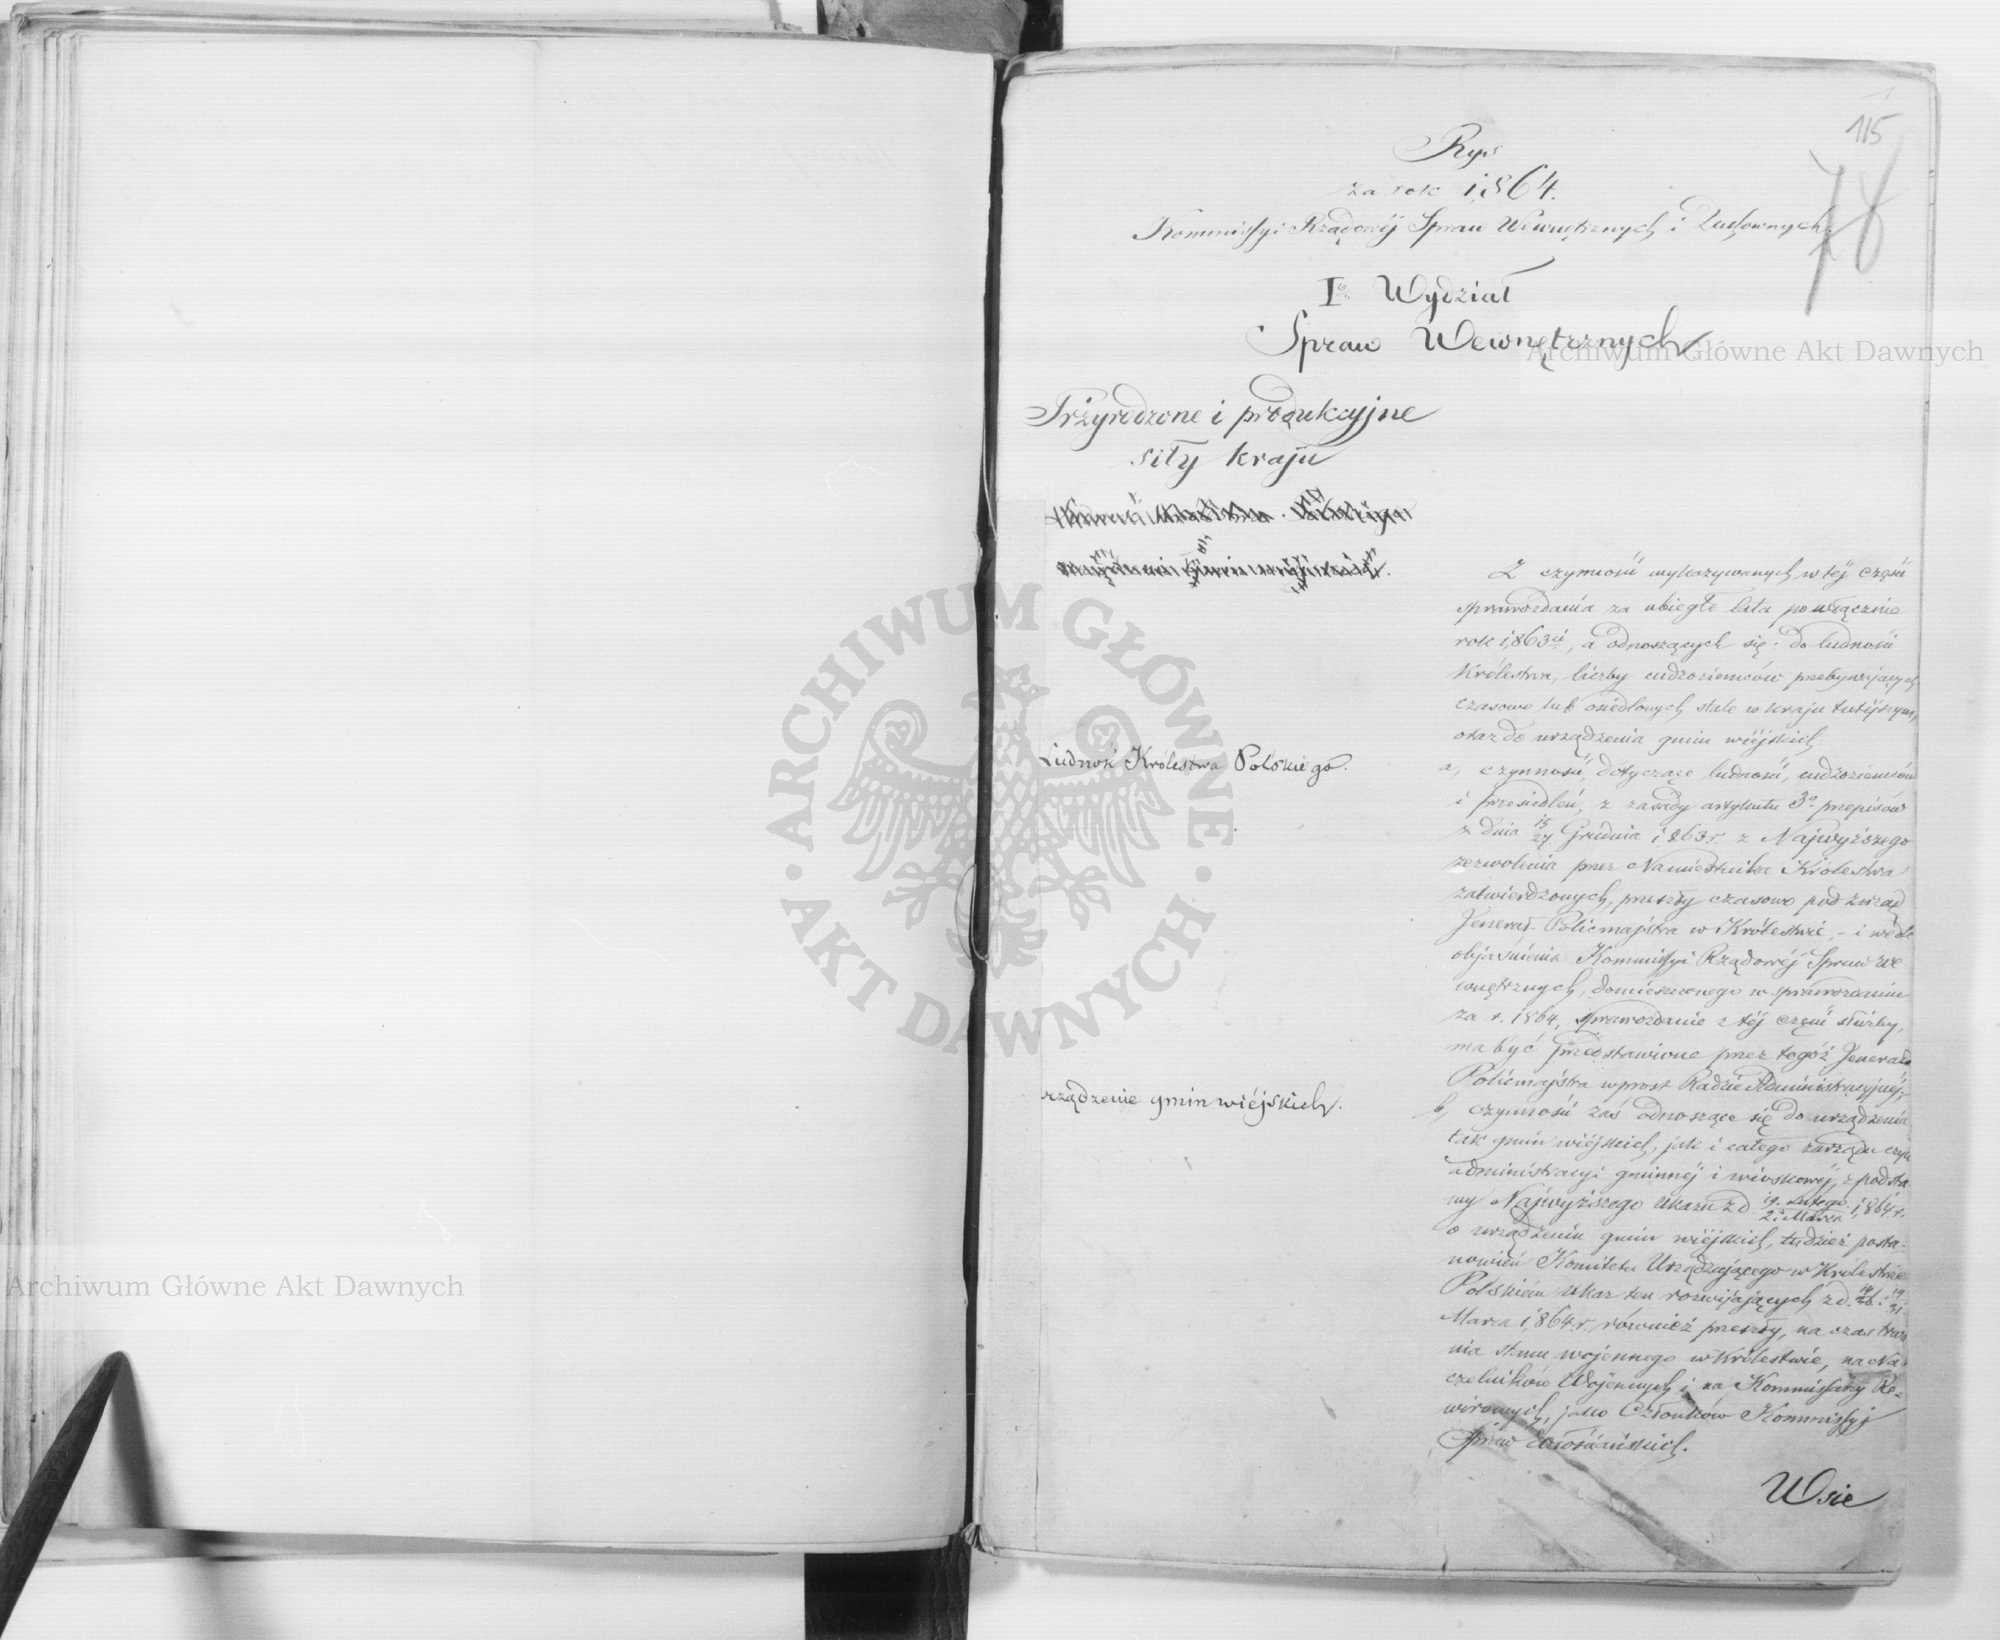 115
78
Rys
za rok 1864.
Kommissyi Rządowéj Spraw Wewnętrznych i Duchownych.
I° Wydział
Spraw Wewnętrznych
Przyrodzone i produkcyjne
siły kraju
Z czynności wykazywanych w téj części
sprawozdania za ubiegłe lata po włącznie
rok 1863ci, a odnoszących się: do ludności
Królestwa, liczby cudzoziemców przebywających
czasowo lub osiedlonych stale w kraju tutéjszym,
oraz do urządzenia gmin wiéjskich
Ludność Królestwa Polskiego.
a, czynności, dotyczące ludności, cudzoziemców
i przesiedleń, z zasady artykułu 3° przepisów
z dnia 15/27 Grudnia 1863 r. z Najwyższego
zezwolenia przez Namiestnika Królestwa
zatwierdzonych, przeszły czasowo pod zarząd
Jenerał-Policmajstra w Królestwie, - i wedle
objaśnienia Kommissyi Rządowéj Spraw We
wnętrznych, domieszczonego w sprawozdaniu
za r. 1864, sprawozdanie z téj części służby,
ma być przedstawione przez tegoż Jenerała
Policmajstra wprost Radzie Administracyjnéj;
rządzenie gmin wiéjskich.
b, czynności zaś odnoszące się do urządzenia
tak gmin wiéjskich, jak i całego zarządu czyli
administracyi gminnéj i wioskowéj, z podsta
wy Najwyższego Ukazu z d 19. Lutego/2. Marca 1864 r.
o urządzeniu gmin wiéjskich, tudzież posta-
nowień Komitetu Urządzającego w Królestwie
Polskiém Ukaz ten rozwijających z d. i 19/31
Marca 1864 r, również przeszły, na czas trwa
nia stanu wojennego w Królestwie, na Na
czelników Wojennych i na Kommissarzy Re-
wirowych, jako Członków Kommissyj
Spraw Włościańskich.
Wsie
Archiwum Główne Akt Dawnych
Archiwum Główne Akt Dawnych
ARCHIWUM GŁÓWNE · AKT DAWNYCH ·